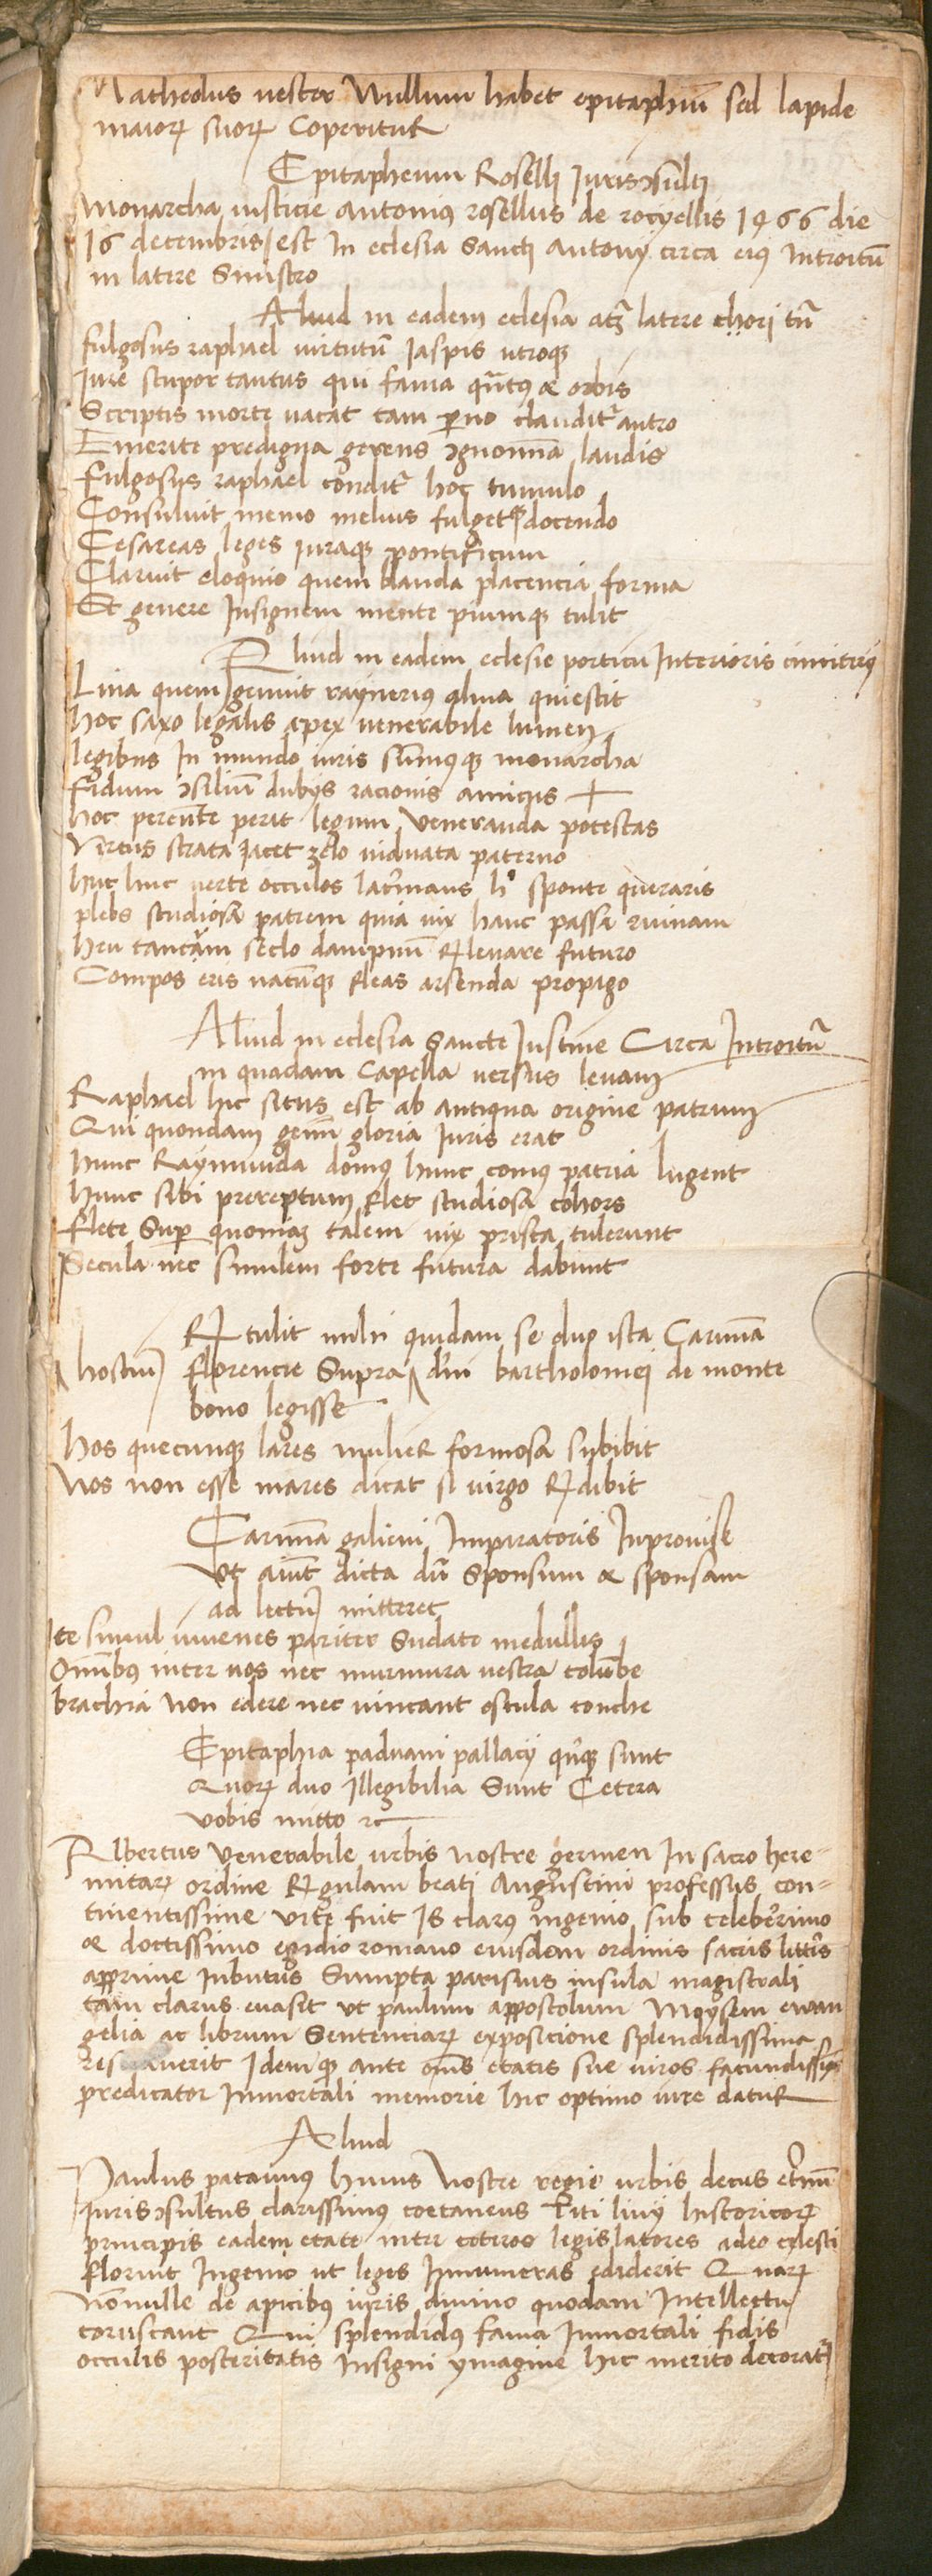 Matheolus vester Nullum habet epitaphiũ sed lapide
maioꝝ suoꝝ Coperitur
Epitaphium Roselli Jurisↄsulti
Monarcha iusticie Antonius rosellus de rocyellis 1466 die
16 decembris est In eclesia Sancti Antonij circa eiꝰ Introitũ
in latere Sinistro
Aliud in eadem eclesia latere chori
fulgosus raphael virtutũ Jaspis utroqꝫ
Jure stupor tantus qui fama qũtꝰ & orbis
Scriptis morte vacat tam claudit͛ antro
Emerite predigna gerens ↄgnomina laudis
Fulgosus raphael condit͛ hoc tumulo
Consuluit nemo melius fulgetqꝫ docendo
Cesareas leges iuraqꝫ pontificum
Claruit eloquio quem blanda placencia forma
Et genere Insignem mente piumqꝫ tulit
Aliud in eadem eclesie porticu Interioris cimiterij
Lina quem genuit raynerius alma quiescit
hoc saxo legalis apex venerabile lumen
legibus In mundo iuris sũmusqꝫ monarcha
fidum ↄsiliũ dubijs racionis amicus
hoc pereunte perit legum veneranda potestas
Virtus strata iacet zelo viduata paterno
huc huc verte occulos lacrimans sponte queraris
plebs studiosa patrem quia vix hanc passa ruinam
heu tantam seclo dampnũ Relevare futuro
Compos eris fleas propago
Aliud in eclesia Sancte Justine Circa Introitũ
in quadam Capella versus levam
Raphael hic situs est ab antiqua origine patrum
Qui quondam gemini gloria Juris erat
hunc Raymunda domꝰ hunc comꝰ patria lugent
hunc sibi prereptum flet studiosa cohors
flete Super quoniaꝫ talem vix prisca tulerunt
Secula nec similem forte futura dabunt
Retulit mihi quidam se duo ista Carmina
hostiũ florencie Supra dñi bartholomei de monte
bono legisse
Hos quecunqꝫ lares mulier formosa subibit
Nos non esse mares dicat si virgo Redibit
Carmina galieni Imperatoris Inprovise
Ut aiũt dicta dũ Sponsum & sponsam
ad lectũ mitteret
Ite simul iuvenes pariter Sudate medullis
Omnibus inter vos nec murmura vestra colũbe
brachia Non edere nec vincant oscula conche
Epitaphia paduani pallacij sunt
Quoꝝ duo Illegibilia Sunt Cetera
vobis mitto
Albertus Venerabile urbis nostre germen In sacro here-
mitaꝝ ordine Regulam beati Augustini professus con-
tinentissime vite fuit Is clarꝰ ingenio sub celeberimo
& doctissimo egidio romano eiusdem ordinis sacris litteris
apprime Inbutus Sumpta parisius insula magistrali
tam clarus evasit ut paulum appostolum Moysem evan
gelia ac librum Sentenciaꝝ exposicione splendidissima
reseraverit Idemqꝫ ante oms etatis sue viros facundissimꝰ
predicator Inmortali memorie hic optimo iure datur
Aliud
Paulus patavinꝰ huius Nostre regie urbis decus eternũ
Jurisↄsultus clarissimꝰ coetaneus Titi livij historicoꝝ
principis eadem etate inter ceteros legislatores adeo celesti
floruit Ingenio ut leges Innumeras ediderit Quaꝝ
Nonnulle de apicibꝰ iuris divino quodam Intellectu
coruscant Qui splendidꝰ fama Inmortali fidis
occulis posteritatis Insigni ymagine hic merito decorat͛